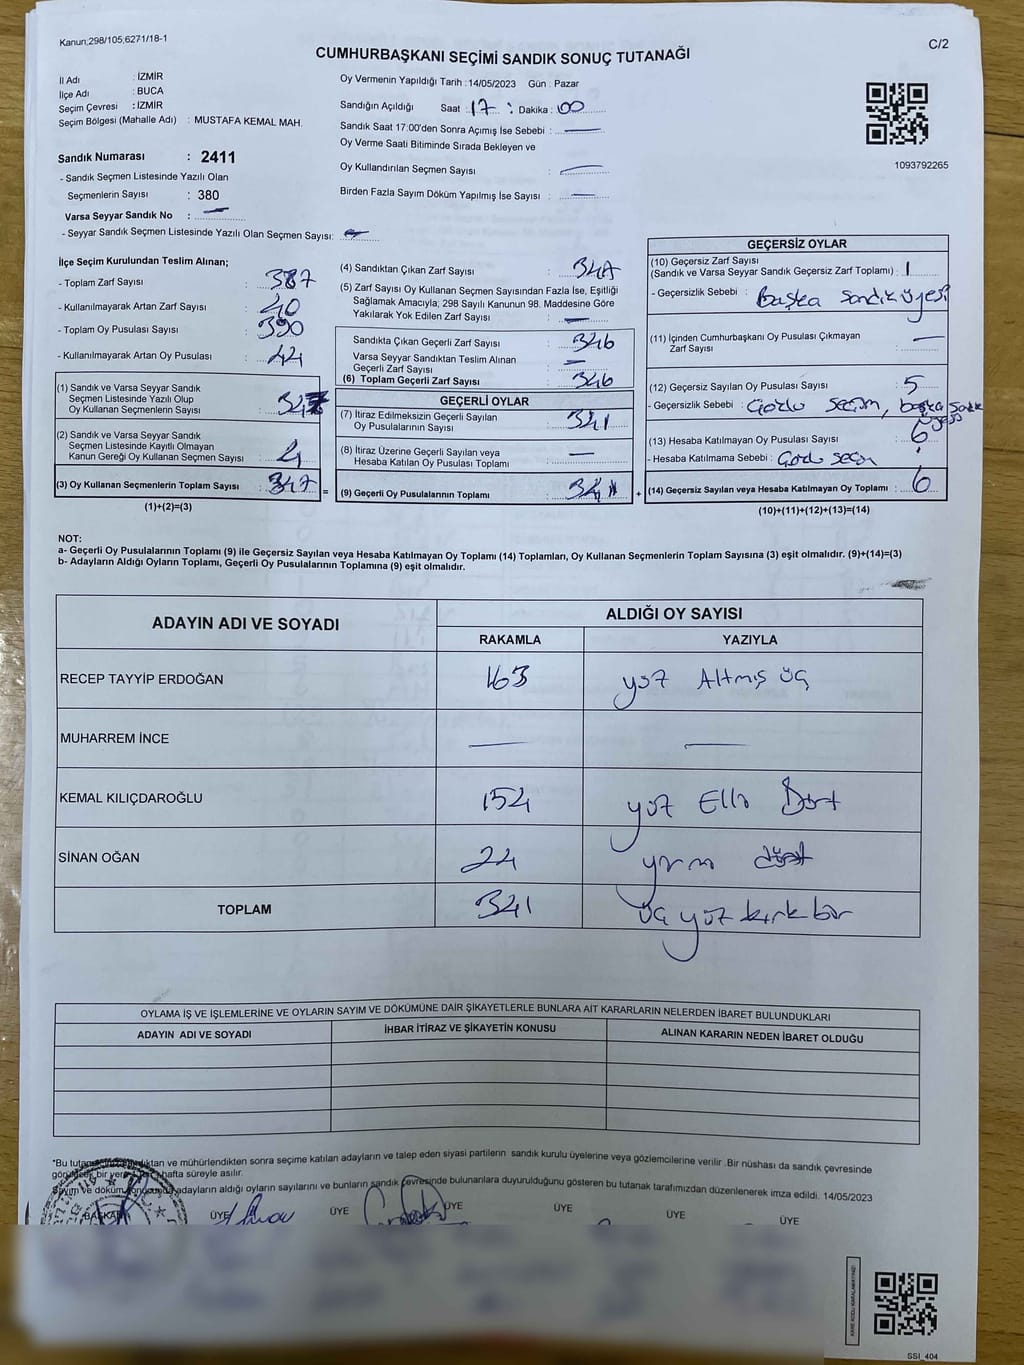 Kanun;298/105;6271/18-1
C/2
CUMHURBAŞKANI SEÇİMİ SANDIK SONUÇ TUTANAĞI
İl Adı : İZMİR
İlçe Adı : BUCA
Seçim Çevresi : İZMİR
Seçim Bölgesi (Mahalle Adı) : MUSTAFA KEMAL MAH.
Sandık Numarası : 2411
- Sandık Seçmen Listesinde Yazılı Olan
Seçmenlerin Sayısı : 380
Varsa Seyyar Sandık No :
- Seyyar Sandık Seçmen Listesinde Yazılı Olan Seçmen Sayısı:
Oy Vermenin Yapıldığı Tarih : 14/05/2023 Gün : Pazar
Sandığın Açıldığı Saat : 17 : Dakika : 00
Sandık Saat 17:00'den Sonra Açımış İse Sebebi : —
Oy Verme Saati Bitiminde Sırada Bekleyen ve
Oy Kullandırılan Seçmen Sayısı : —
Birden Fazla Sayım Döküm Yapılmış İse Sayısı : —
1093792265
İlçe Seçim Kurulundan Teslim Alınan;
- Toplam Zarf Sayısı : 387
- Kullanılmayarak Artan Zarf Sayısı : 40
- Toplam Oy Pusulası Sayısı : 390
- Kullanılmayarak Artan Oy Pusulası : 44
(1) Sandık ve Varsa Seyyar Sandık
Seçmen Listesinde Yazılı Olup
Oy Kullanan Seçmenlerin Sayısı :
(2) Sandık ve Varsa Seyyar Sandık
Seçmen Listesinde Kayıtlı Olmayan
Kanun Gereği Oy Kullanan Seçmen Sayısı : 4
(3) Oy Kullanan Seçmenlerin Toplam Sayısı : 347 =
(1)+(2)=(3)
(4) Sandıktan Çıkan Zarf Sayısı :
(5) Zarf Sayısı Oy Kullanan Seçmen Sayısından Fazla İse, Eşitliği
Sağlamak Amacıyla; 298 Sayılı Kanunun 98. Maddesine Göre
Yakılarak Yok Edilen Zarf Sayısı : —
Sandıkta Çıkan Geçerli Zarf Sayısı : 346
Varsa Seyyar Sandıktan Teslim Alınan
Geçerli Zarf Sayısı : —
(6) Toplam Geçerli Zarf Sayısı : 346
GEÇERLİ OYLAR
(7) İtiraz Edilmeksizin Geçerli Sayılan
Oy Pusulalarının Sayısı : 341
(8) İtiraz Üzerine Geçerli Sayılan veya
Hesaba Katılan Oy Pusulası Toplamı : —
(9) Geçerli Oy Pusulalarının Toplamı : 341 +
GEÇERSİZ OYLAR
(10) Geçersiz Zarf Sayısı
(Sandık ve Varsa Seyyar Sandık Geçersiz Zarf Toplamı) : 1
- Geçersizlik Sebebi : Başka sandık üyesi
(11) İçinden Cumhurbaşkanı Oy Pusulası Çıkmayan
Zarf Sayısı : —
(12) Geçersiz Sayılan Oy Pusulası Sayısı : 5
- Geçersizlik Sebebi : seçim, başka
(13) Hesaba Katılmayan Oy Pusulası Sayısı : 6
- Hesaba Katılmama Sebebi :
(14) Geçersiz Sayılan veya Hesaba Katılmayan Oy Toplamı : 6
(10)+(11)+(12)+(13)=(14)
NOT:
a- Geçerli Oy Pusulalarının Toplamı (9) ile Geçersiz Sayılan veya Hesaba Katılmayan Oy Toplamı (14) Toplamları, Oy Kullanan Seçmenlerin Toplam Sayısına (3) eşit olmalıdır. (9)+(14)=(3)
b- Adayların Aldığı Oyların Toplamı, Geçerli Oy Pusulalarının Toplamına (9) eşit olmalıdır.
ADAYIN ADI VE SOYADI
ALDIĞI OY SAYISI
RAKAMLA YAZIYLA
RECEP TAYYİP ERDOĞAN 163 yüz Altmış üç
MUHARREM İNCE — —
KEMAL KILIÇDAROĞLU 154 yüz Elli Dört
SİNAN OĞAN 24 yirmi dört
TOPLAM 341 üç yüz kırk bir
OYLAMA İŞ VE İŞLEMLERİNE VE OYLARIN SAYIM VE DÖKÜMÜNE DAİR ŞİKAYETLERLE BUNLARA AİT KARARLARIN NELERDEN İBARET BULUNDUKLARI
ADAYIN ADI VE SOYADI İHBAR İTİRAZ VE ŞİKAYETİN KONUSU ALINAN KARARIN NEDEN İBARET OLDUĞU
*Bu ve mühürlendikten sonra seçime katılan adayların ve talep eden siyasi partilerin sandık kurulu üyelerine veya gözlemcilerine verilir .Bir nüshası da sandık çevresinde
bir hafta süreyle asılır.
Sayım ve döküm sonucunda adayların aldığı oyların sayılarını ve bunların sandık çevresinde bulunanlara duyurulduğunu gösteren bu tutanak tarafımızdan düzenlenerek imza edildi. 14/05/2023
BAŞKAN ÜYE ÜYE ÜYE ÜYE ÜYE ÜYE
KARE KODU KARALAMAYINIZ!
SSI_404